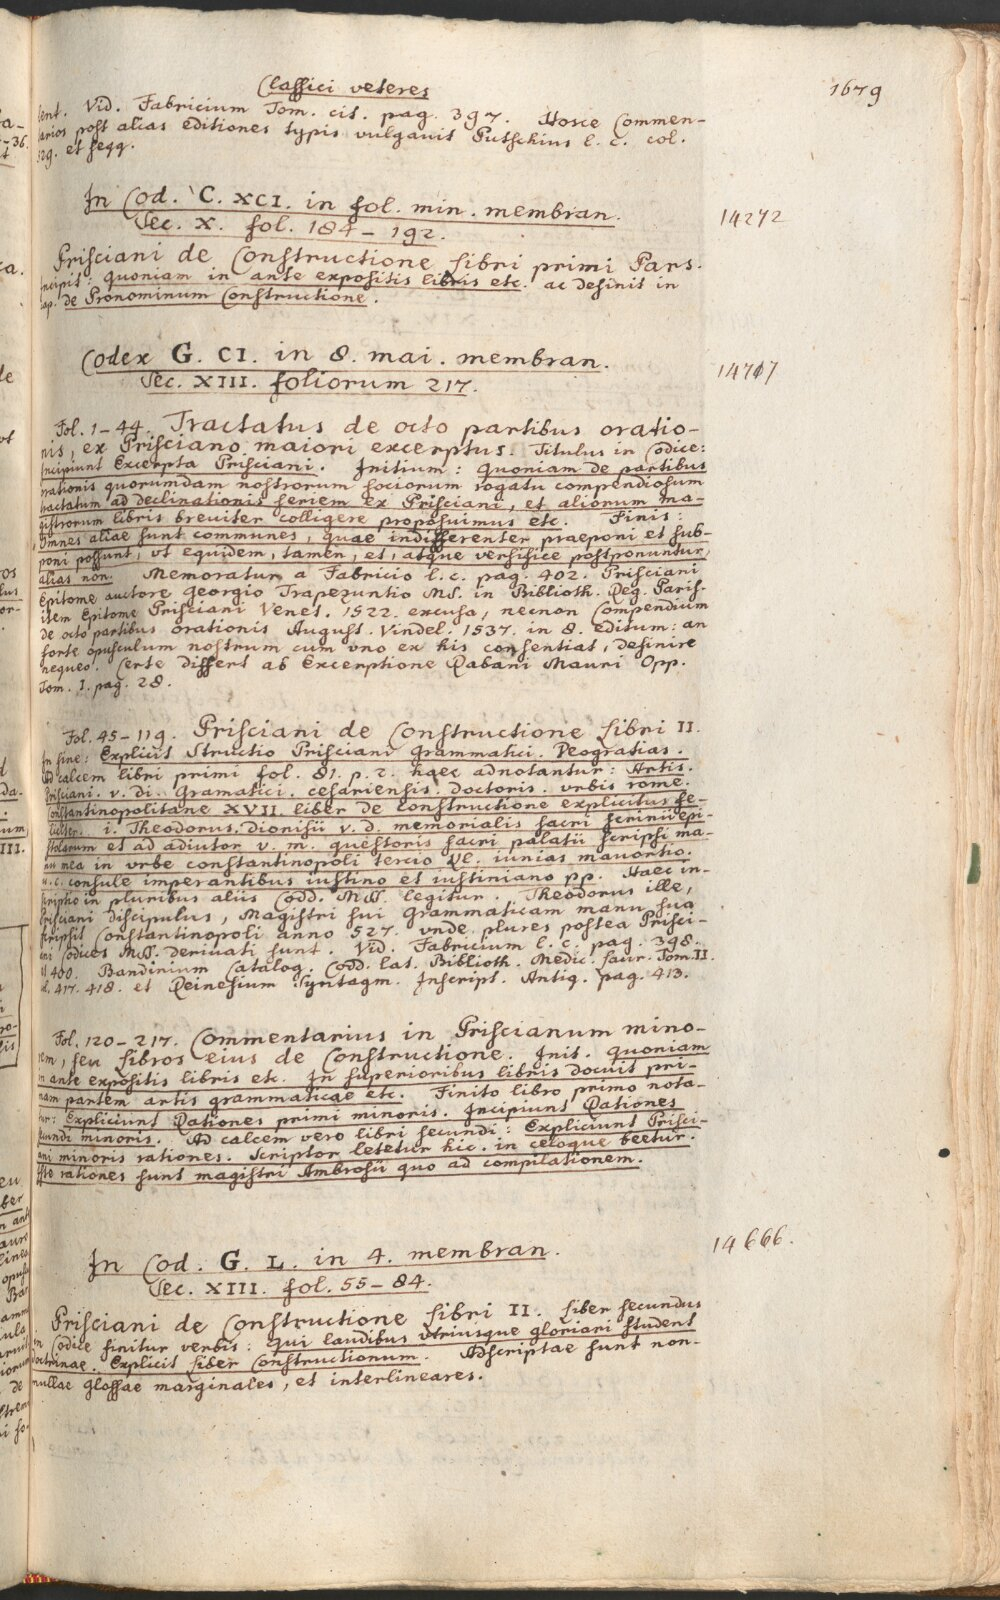 Classici veteres
1679
sent. Vid. Fabricium Tom. cit. pag. 397. Hosce Commen-
tarios post alias editiones typis vulgavit Putschius l. c. col.
529. et seqq.
In Cod. C. XCI. in fol. min. membran.
Sec. X. fol. 184-192.
14272
Prisciani de Constructione Libri primi Pars.
Incipit: quoniam in ante expositis libris etc. ac desinit in
cap. de Pronominum Constructione.
Codex G. CI. in 8. mai. membran.
Sec. XIII. foliorum 217.
14717
Fol. 1-44. Tractatus de octo partibus oratio-
nis, ex Prisciano maiori excerptus. Titulus in Codice:
Incipiunt Excerpta Prisciani. Initium: Quoniam de partibus
orationis quorumdam nostrorum sociorum rogatu compendiosum
tractatum ad declinationis seriem ex Prisciani, et aliorum ma-
gistrorum libris breviter colligere proposuimus etc. Finis:
Omnes aliae sunt communes, quae indifferenter praeponi et sub-
poni possunt, ut equidem, tamen, et, atque versifice postponuntur,
alias non. Memoratur a Fabricio l. c. pag. 402. Prisciani
Epitome auctore Georgio Trapezuntio MS. in Biblioth. Reg. Paris.
item Epitome Prisciani Venet. 1522. excusa, necnon Compendium
de octo partibus orationis August. Vindel. 1537. in 8. editum: an
forte opusculum nostrum cum uno ex his consentiat, definire
nequeo. Certe differt ab Excerptione Rabani Mauri Opp.
Tom. I. pag. 28.
Fol. 45-119. Prisciani de Constructione Libri II.
In fine: Explicit Structio Prisciani Grammatici. Deogratias.
Ad calcem libri primi fol. 81. p. 2. haec adnotantur: Artis.
Prisciani. v. di. Gramatici. cesariensis. doctoris. urbis rome.
Constantinopolitane XVII. liber de constructione explicitus fe-
liciter. i. Theodorus. Dionisii v. d. memorialis sacri scrinii epi-
stolarum et ad adiutor v. m. questoris sacri palatii scripsi ma-
nu mea in urbe constantinopoli tercio kl. iunias mavortio.
v. c. consule imperantibus iustino et iustiniano pp. Haec in-
scriptio in pluribus aliis Codd. MSS. legitur. Theodorus ille,
Prisciani discipulus, Magistri sui Grammaticam manu sua
scripsit Constantinopoli anno 527. unde plures postea Prisci-
ani Codices MSS. derivati sunt. Vid. Fabricium l. c. pag. 398.
et 400. Bandinium Catalog. Codd. lat. Biblioth. Medic. Laur. Tom. II.
col. 417. 418. et Reinesium Syntagm. Inscript. Antiq. pag. 413.
Fol. 120-217. Commentarius in Priscianum mino-
rem, seu Libros eius de Constructione. Init. Quoniam
in ante expositis libris etc. In superioribus libris docuit pri-
mam partem artis grammaticae etc. Finito libro primo nota-
tur: Expliciunt Rationes primi minoris. Incipiunt Rationes
secundi minoris. Ad calcem vero libri secundi: Expliciunt Prisci-
ani minoris rationes. Scriptor letetur hic. in celoque beetur.
Iste rationes sunt magistri Ambrosii quo ad compilationem.
In Cod. G. L. in 4. membran.
Sec. XIII. fol. 55-84.
14666.
Prisciani de Constructione Libri II. Liber secundus
in Codice finitur verbis: qui laudibus utriusque gloriari student
doctrinae. Explicit Liber Constructionum. Adscriptae sunt non-
nullae glossae marginales, et interlineares.